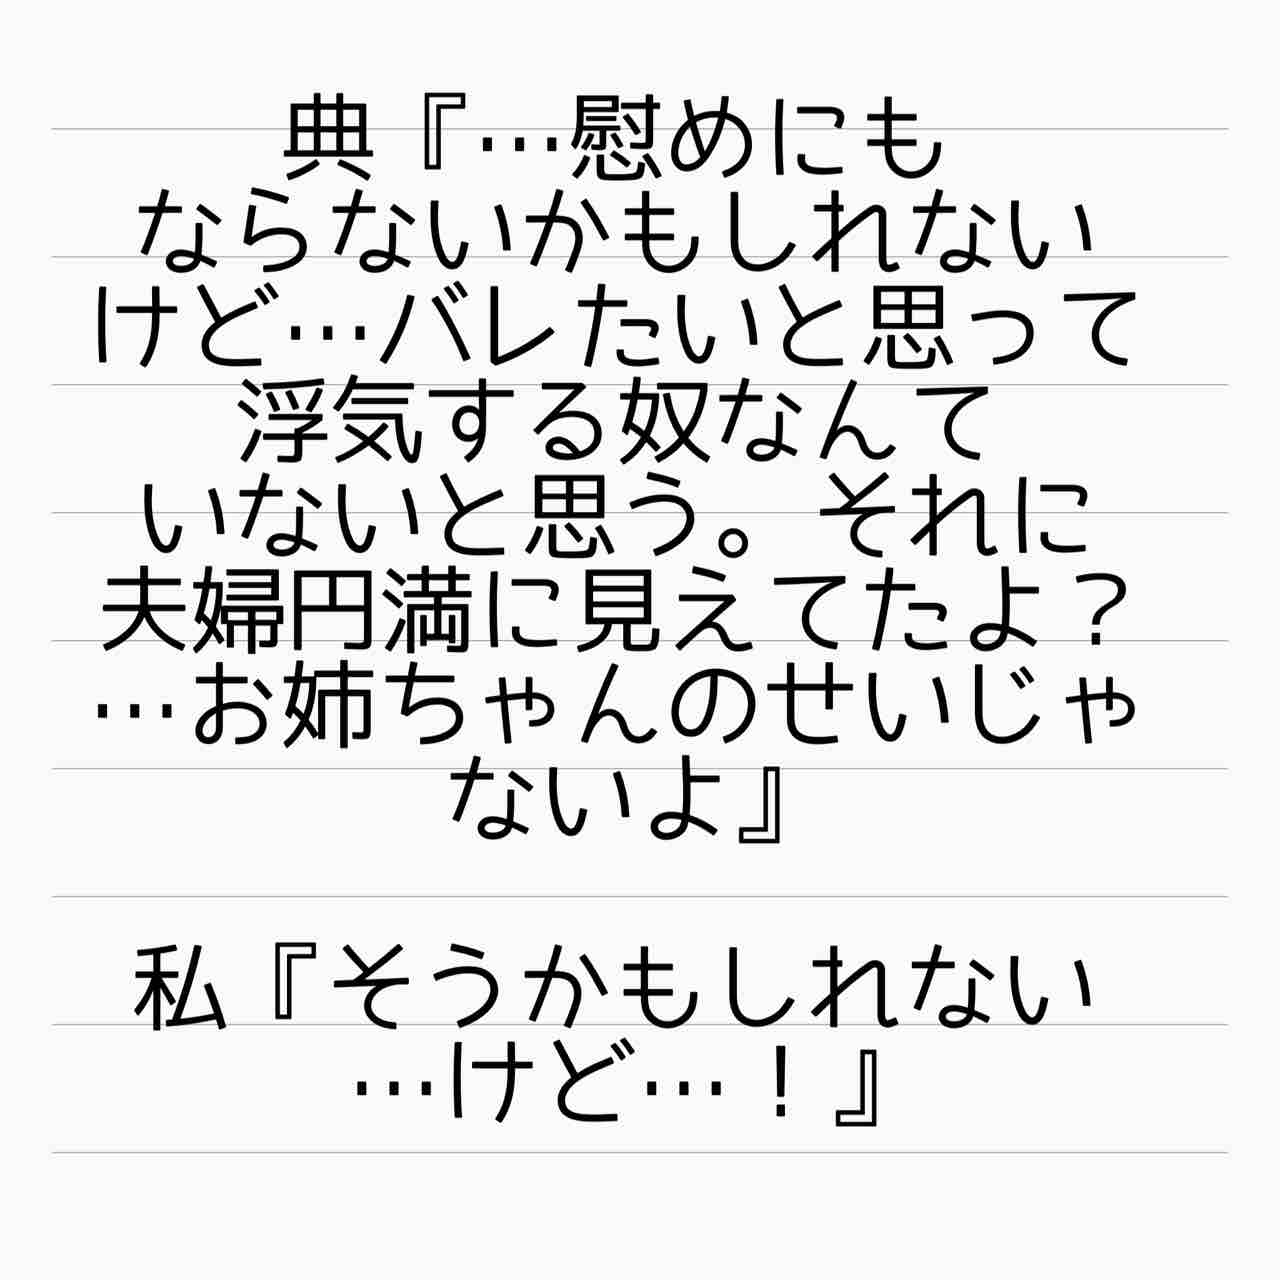 典『…慰めにも
ならないかもしれない
けど…バレたいと思って
浮気する奴なんて
いないと思う。それに
夫婦円満に見えてたよ？
…お姉ちゃんのせいじゃ
ないよ』
私『そうかもしれない
…けど…！』